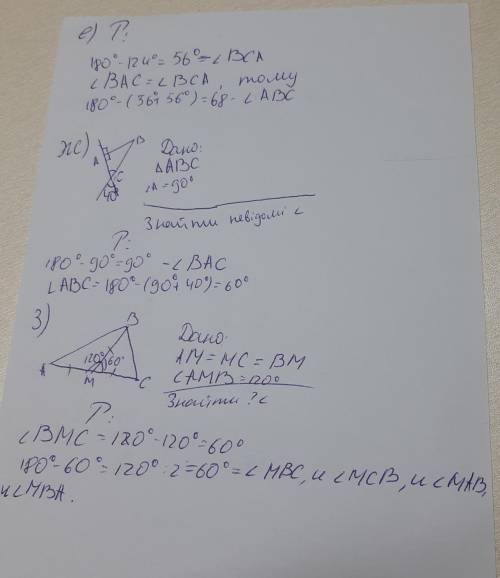 е) Р:
180°-124°=56°=∠BCA
∠BAC=∠BCA, тому
180°-(56°+56°)=68-∠ABC
ж)
B
A
C
40°
Дано:
△ABC
∠A=90°
Знайти невідомі ∠
Р:
180°-90°=90°-∠BAC
∠ABC=180°-(90°+40°)=60°
З)
B
A
120°
60°
M
C
Дано:
AM=MC=BM
∠AMB=120°
Знайти ?∠
Р:
∠BMC=180°-120°=60°
180°-60°=120°:2=60°=∠MBC, и ∠MCB, и ∠MAB,
и ∠MBA.